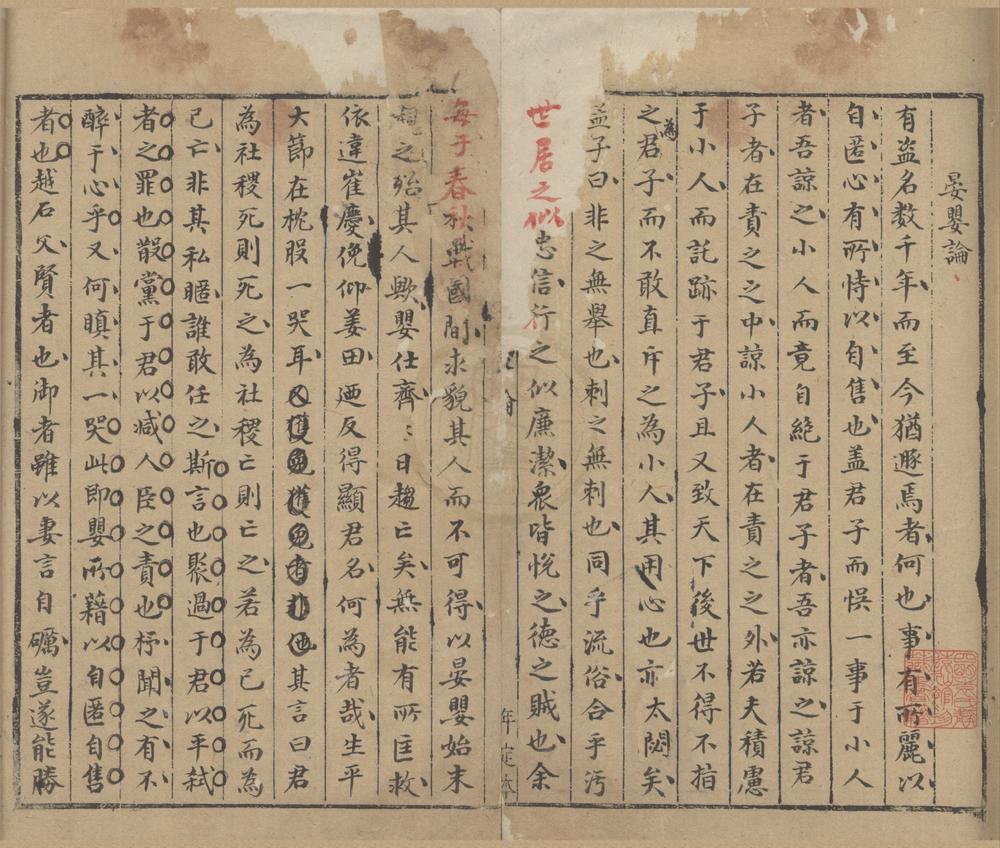 晏嬰論
有盜名數千年而至今猶遯焉者何也事有所麗以
自匿心有所恃以自售也盖君子而悞一事于小人
者吾諒之小人而竟自絕于君子者吾亦諒之諒君
子者在責之之中諒小人者在責之之外若夫積慮
于小人而託跡于君子且又致天下後世不得不指
之為君子而不敢直斥之為小人其用心也亦太閟矣
孟子曰非之無舉也刺之無刺也同乎流俗合乎汚
世居之似忠信行之似廉潔衆皆悅之德之賊也余
年定本
每于春秋戰國間求貌其人而不可得以晏嬰始末
觀之殆其人歟嬰仕齊齊日趨亡矣無能有所匡救
依違崔慶俛仰姜田廼反得顯君名何為者哉生平
大節在枕股一哭耳其言曰君
為社稷死則死之為社稷亡則亡之若為己死而為
已亡非其私暱誰敢任之斯言也聚過于君以平弒
者之罪也散黨于君以減人臣之責也杼聞之有不
醉于心乎又何瞋其一哭此即嬰所藉以自匿自售
者也越石父賢者也御者雖以妻言自礪豈遂能勝